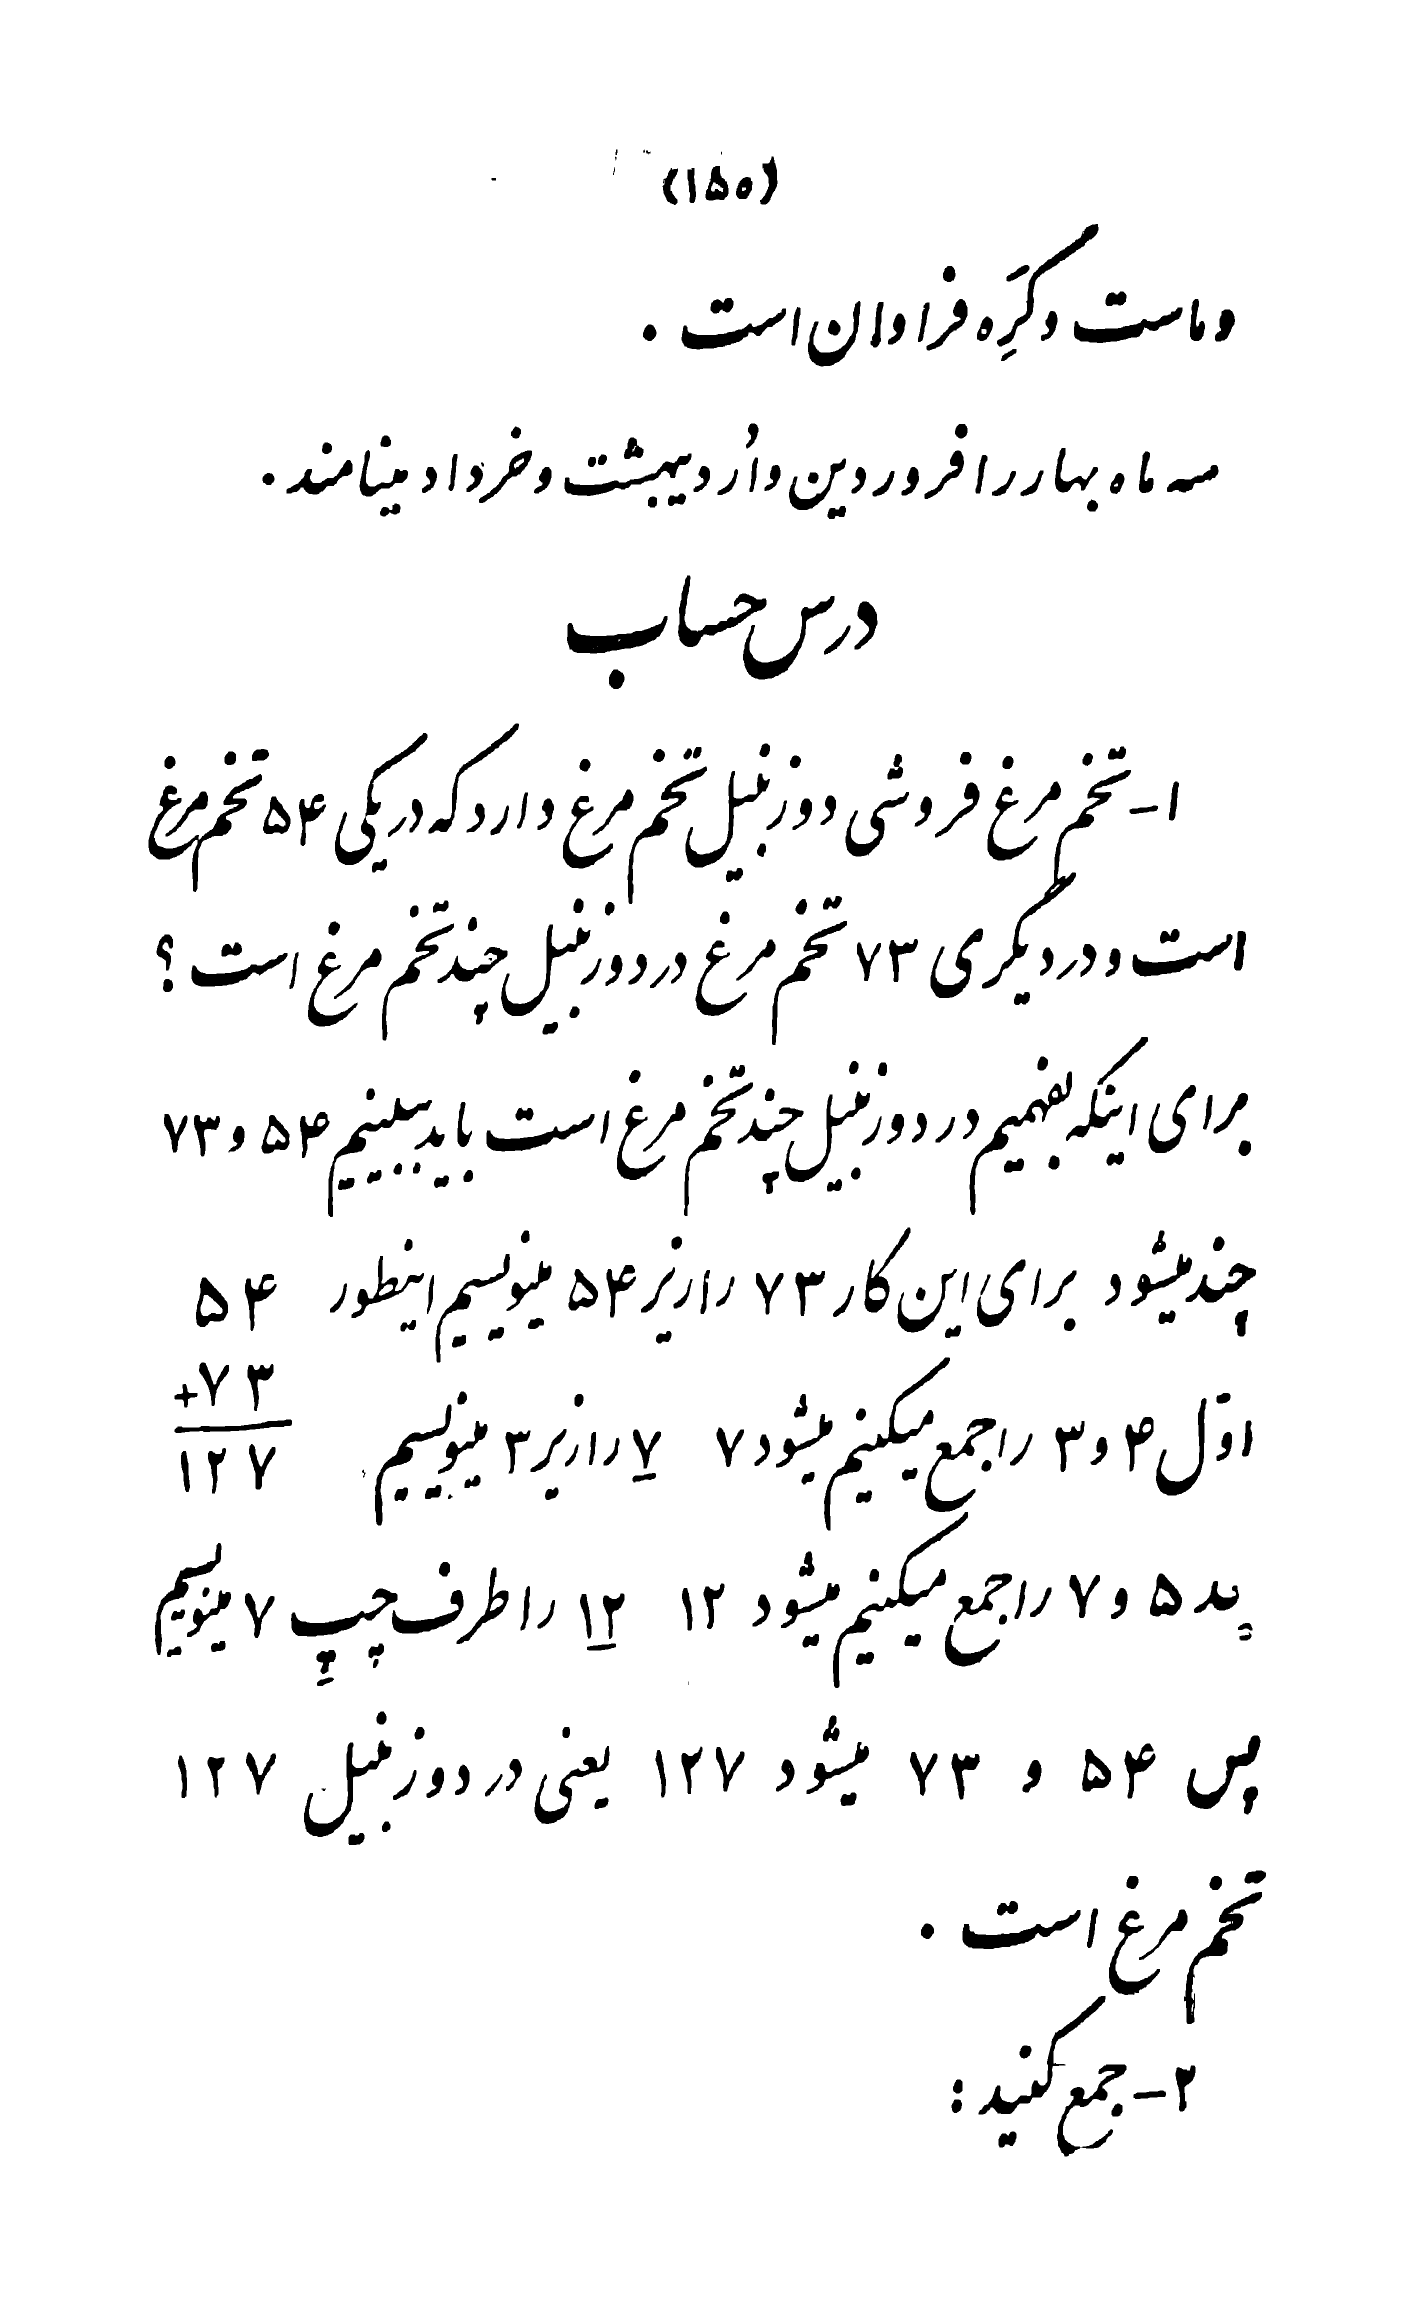 (۱۵۰)
و ماست و کَرِه فراوان است .
سه ماه بهار را فروردین و اُردیبهشت و خرداد مینامند .
درس حساب
۱- تخم مرغ فروشی دو زنبیل تخم مرغ دارد که در یکی ۵۴ تخم مرغ
است و در دیگری ۷۳ تخم مرغ در دو زنبیل چند تخم مرغ است ؟
برای اینکه بفهمیم در دو زنبیل چند تخم مرغ است باید ببینیم ۵۴ و ۷۳
چند میشود برای این کار ۷۳ را زیر ۵۴ مینویسیم اینطور ۵۴
+۷۳
اوّل ۴ و ۳ را جمع میکنیم میشود ۷ ۷ را زیر ۳ مینویسیم ۱۲۷
بعد ۵ و ۷ را جمع میکنیم میشود ۱۲ ۱۲ را طرف چپِ ۷ مینویسیم
پس ۵۴ و ۷۳ میشود ۱۲۷ یعنی در دو زنبیل ۱۲۷
تخم مرغ است .
۲- جمع کنید :